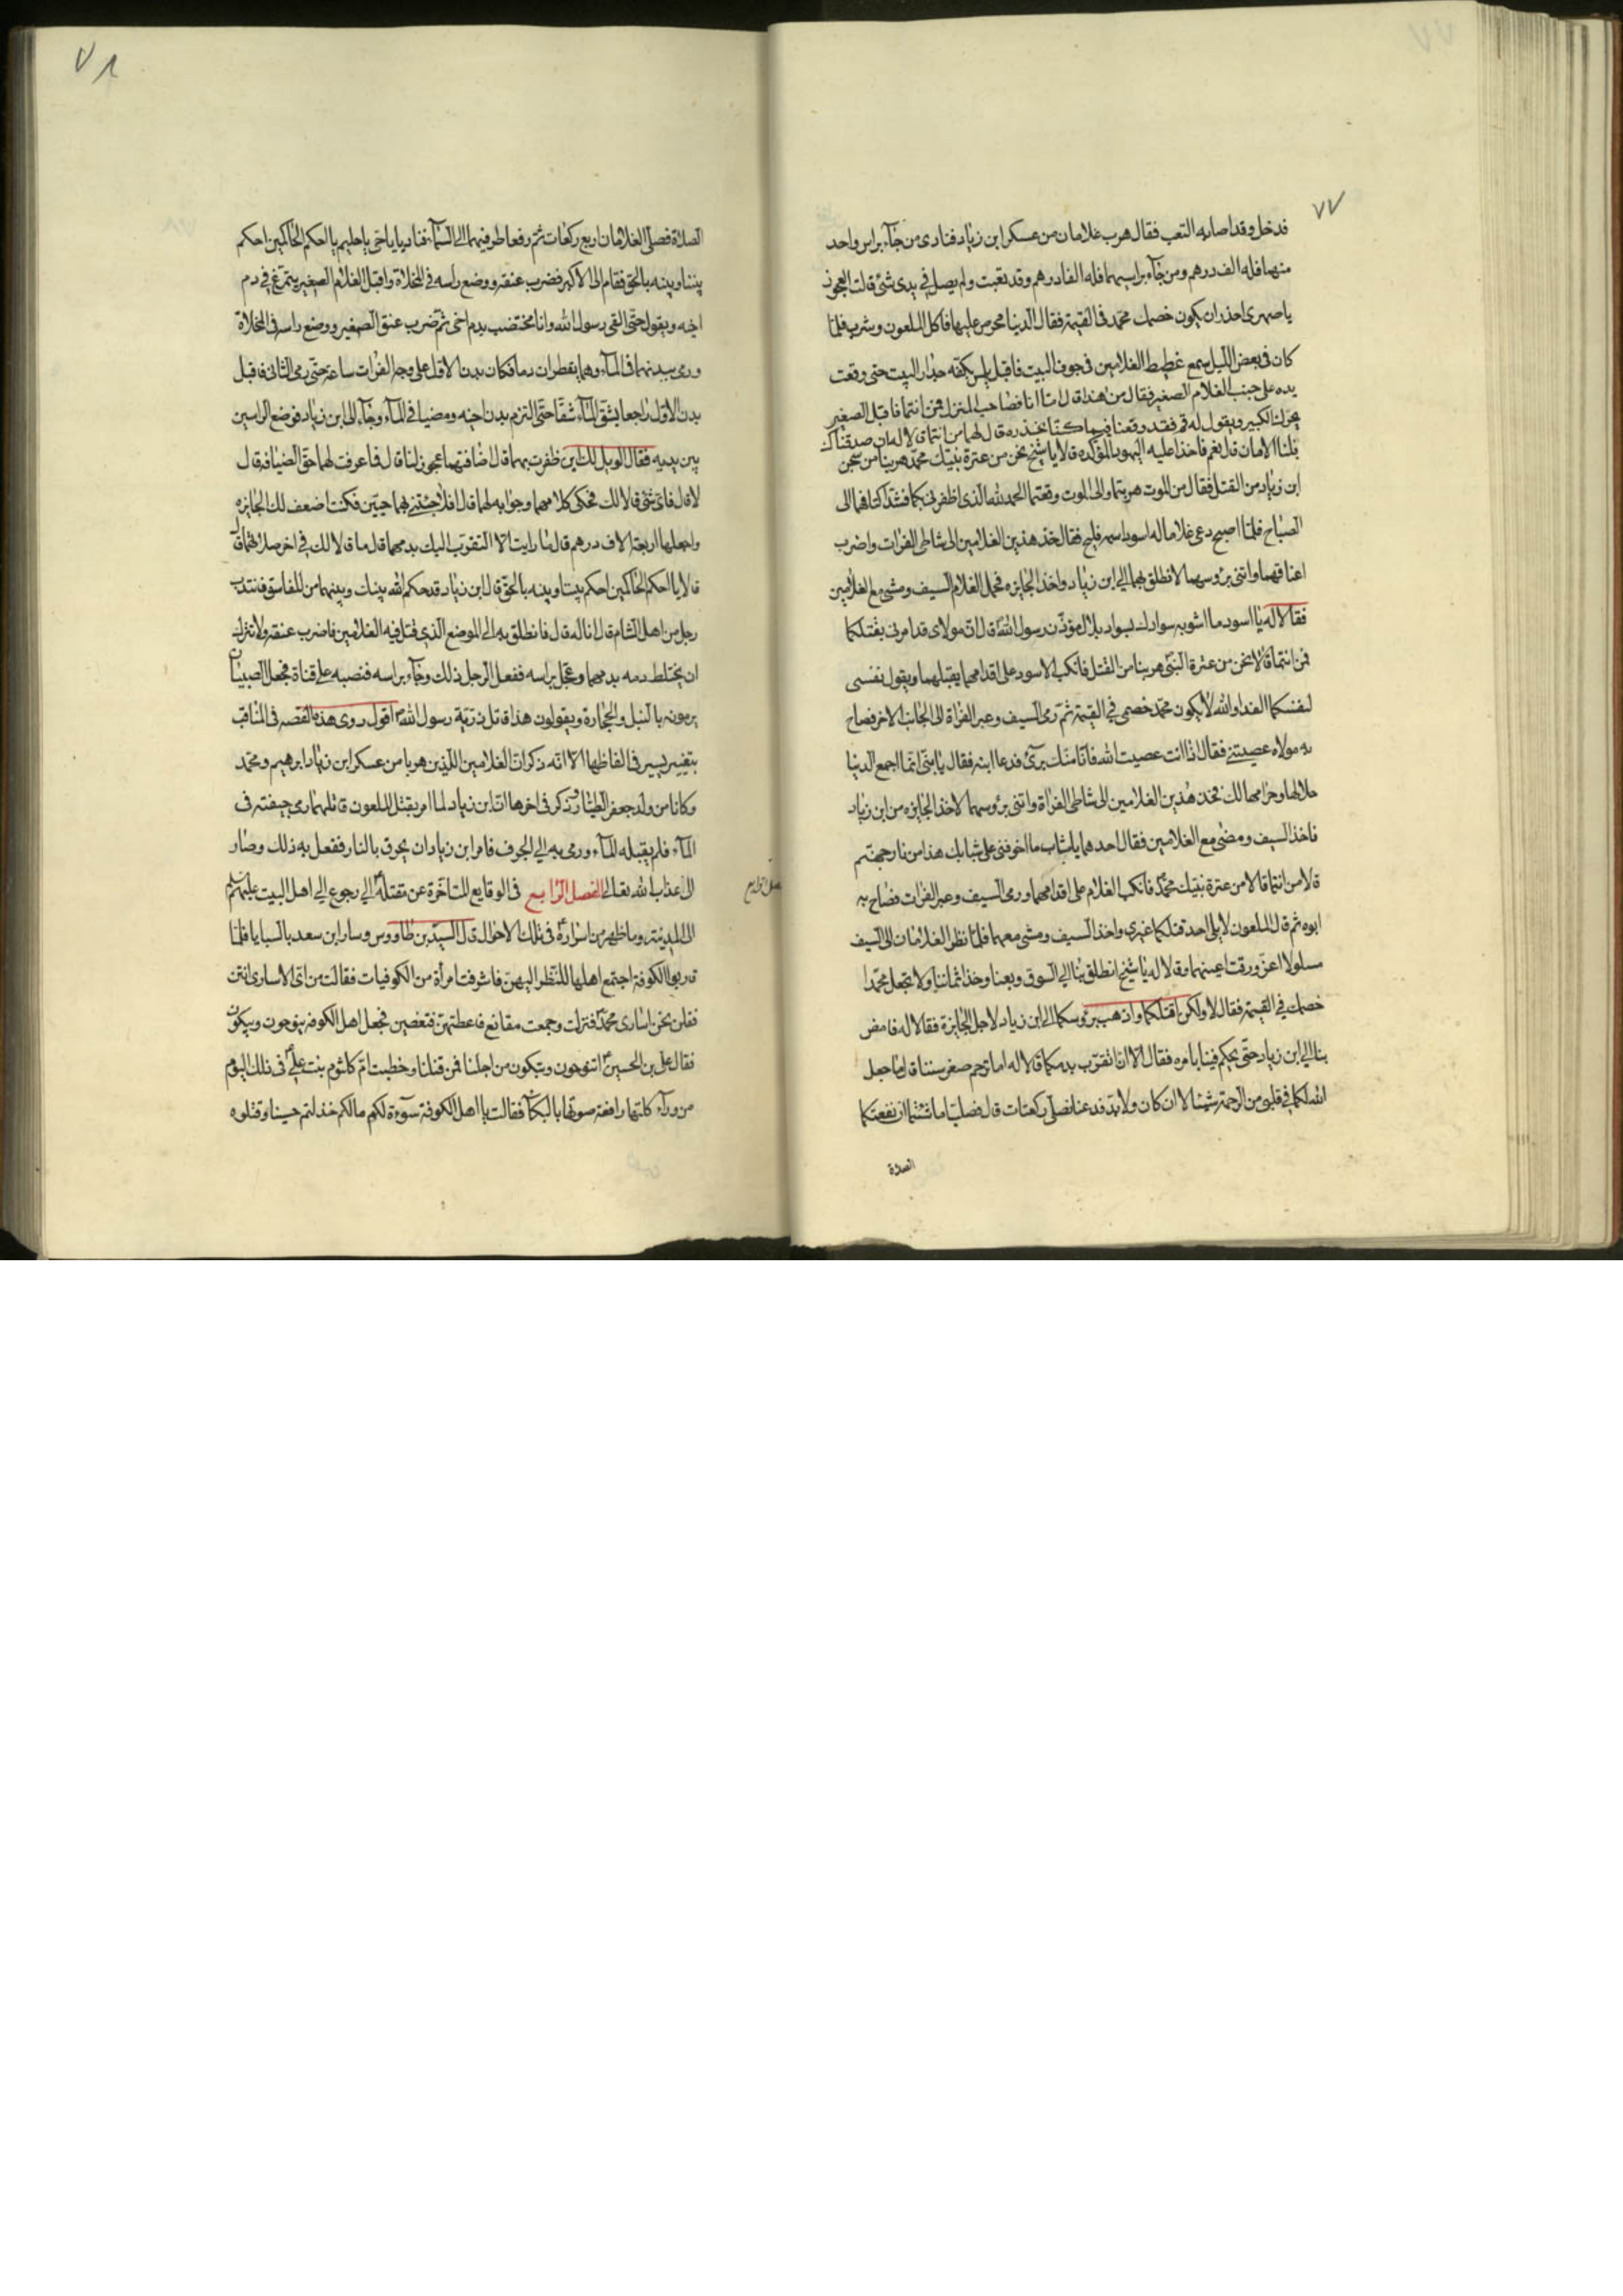 ٧٧
فدخل وقد اصابه التعب فقال هرب غلامان من عسكر ابن زياد فنادى من جاء براس واحد
منهما فله الف درهم ومن جاء براسيهما فله الفا درهم وقد تعبت ولم يصل في يدى شئ قالت العجوز
يا صهرى احذر ان يكون خصمك محمد فى القيمة فقال الدنيا محرص عليها فاكل الملعون وشرب فلما
كان فى بعض الليل سمع غطيط الغلامين فى جوف البيت فاقبل يلمس بكفه جدار البيت حتى وقعت
يده على جنب الغلام الصغير فقال من هذا قال اما انا فصاحب المنزل فمن انتما فاقبل الصغير
يحرك الكبير ويقول له قم فقد وقعنا فيما كنا نحذره قال لهما من انتما قالا له ان صدقناك
فلنا الامان قال نعم فاخذا عليه العهود المؤكده قالا يا شيخ نحن من عترة نبيك محمد هربنا من سجن
ابن زياد من القتل فقال من الموت هربتما والى الموت وقعتما الحمد لله الذى اظفرنى بكما فشد اكتافهما الى
الصباح فلما اصبح دعى غلاما له اسود اسمه فليح فقال خذ هذين الغلامين الى شاطى الفرات واضرب
اعناقهما واتنى برؤسهما لانطلق بهما الى ابن زياد واخذ الجايزه فحمل الغلام السيف ومشى مع الغلامين
فقالا له يا اسود ما اشبه سوادك بسواد بلال مؤذن رسول الله قال ان مولاى قد امرنى بقتلكما
فمن انتما قالا نحن من عترة النبى هربنا من القتل فانكب الاسود على اقدامهما يقبلهما ويقول نفسى
لنفسكما الفدا والله لا يكون محمد خصمى في القيمة ثم رمى السيف وعبر الفراة الى الجانب الاخر فصاح
به مولاه عصيتنى فقال اذا انت عصيت الله فانا منك برئ فدعا ابنه فقال يا بنى انما اجمع الدنيا
حلالها وحرامها لك فخذ هذين الغلامين الى شاطى الفراة واتنى برؤسهما لاخذ الجايزه من ابن زياد
فاخذ السيف ومضى مع الغلامين فقال احدهما يا شاب ما اخوفنى على شبابك هذا من نار جهنم
قال من انتما قالا من عترة نبيك محمد فانكب الغلام على اقدامهما ورمى السيف وعبر الفرات فصاح به
ابوه ثم قال الملعون لا يلى احد قتلكما غيرى واخذ السيف ومشى معهما فلما نظر الغلامان الى السيف
مسلولا اغرورقت اعينهما وقالا له يا شيخ انطلق بنا الى السوق وبعنا وخذ اثماننا ولا تجعل محمدا
خصمك فى القيمة فقال لا ولكن اقتلكما واذهب برؤسكما الى ابن زياد لاجل الجايزة فقالا له فامض
بنا الى ابن زياد حتى يحكم فينا بامره فقال لا الا ان اتقرب بدمكما قالا له اما ترحم صغر سننا قال ما جعل
الله لكما في قلبى من الرحمة شيئا قالا ان كان ولابد فدعنا نصلى ركعات قال فصليا ما شئتما ان نفعتكما
الصلاة
٧٨
الصلاة فصلى الغلامان اربع ركعات ثم رفعا طرفيهما الى السماء فناديا يا حى يا حليم يا احكم الحاكمين احكم
بيننا وبينه بالحق فقام الى الاكبر فضرب عنقه ووضع راسه في المخلاة واقبل الغلام الصغير يتمرغ في دم
اخيه ويقول حتى القى رسول الله وانا مختضب بدم اخى ثم ضرب عنق الصغير ووضع راسه فى المخلاة
ورمى ببدنهما فى الماء وهما يقطران دما فكان بدن الاول على وجه الفرات ساعة حتى رمى الثانى فاقبل
بدن الاول راجعا يشق الماء شقا حتى التزم بدن اخيه ومضيا في الماء وجاء الى ابن زياد فوضع الراسين
بين يديه فقال الويل لك اين ظفرت بهما قال ضافتهما عجوز لنا قال فما عرفت لهما حق الضيافة قال
لا قال فاى شئ قالا لك فحكى كلامهما وجوابه لهما قال افلا جئتنى بهما حيين فكنت اضعف لك الجايزه
واجعلها اربعة الاف درهم قال ما رايت الا التقرب اليك بدمهما قال ما قالا لك في اخر صلاتهما قال
قالا يا احكم الحاكمين احكم بيننا وبينه بالحق قال ابن زياد قد حكم الله بينك وبينهما من للفاسق فانتدب
رجل من اهل الشام قال انا له قال فانطلق به الى الموضع الذى قتل فيه الغلامين فاضرب عنقه ولا تترك
ان يختلط دمه بدمهما وعجل براسه ففعل الرجل ذلك وجاء براسه فنصبه على قناة فجعل الصبيان
يرمونه بالنبل والحجارة ويقولون هذا قاتل ذرية رسول الله اقول روى هذه القصه فى المناقب
بتغيير يسير فى الفاظها الا انه ذكر ان الغلامين اللذين هربا من عسكر ابن زياد ابرهيم ومحمد
وكانا من ولد جعفر الطيار وذكر فى اخرها ان ابن زياد لما امر بقتل الملعون قاتلهما رمى جيفته فى
الماء فلم يقبله الماء ورمى به الى الجرف فامر ابن زياد ان يحرق بالنار ففعل به ذلك وصار
الى عذاب الله تعالى الفصل الرابع فى الوقايع المتاخرة عن مقتله الى رجوع الى اهل البيت عليهم السلم
الى المدينة وما ظهر من اسراره فى تلك الاحوال قال السيد بن طاووس وسار ابن سعد بالسبايا فلما
قاربوا الكوفة اجتمع اهلها للنظر اليهن فاشرفت امرأة من الكوفيات فقالت من اى الاسارى انتن
فقلن نحن اسارى محمد فنزلت وجمعت مقانع فاعطتهن فتغطين فجعل اهل الكوفه ينوحون ويبكون
فقال على بن الحسين اتنوحون وتبكون من اجلنا فمن قتلنا وخطبت ام كلثوم بنت على فى ذلك اليوم
من وراء كلتها رافعة صوتها بالبكاء فقالت يا اهل الكوفة سوءة لكم ما لكم خذلتم حسينا وقتلوه